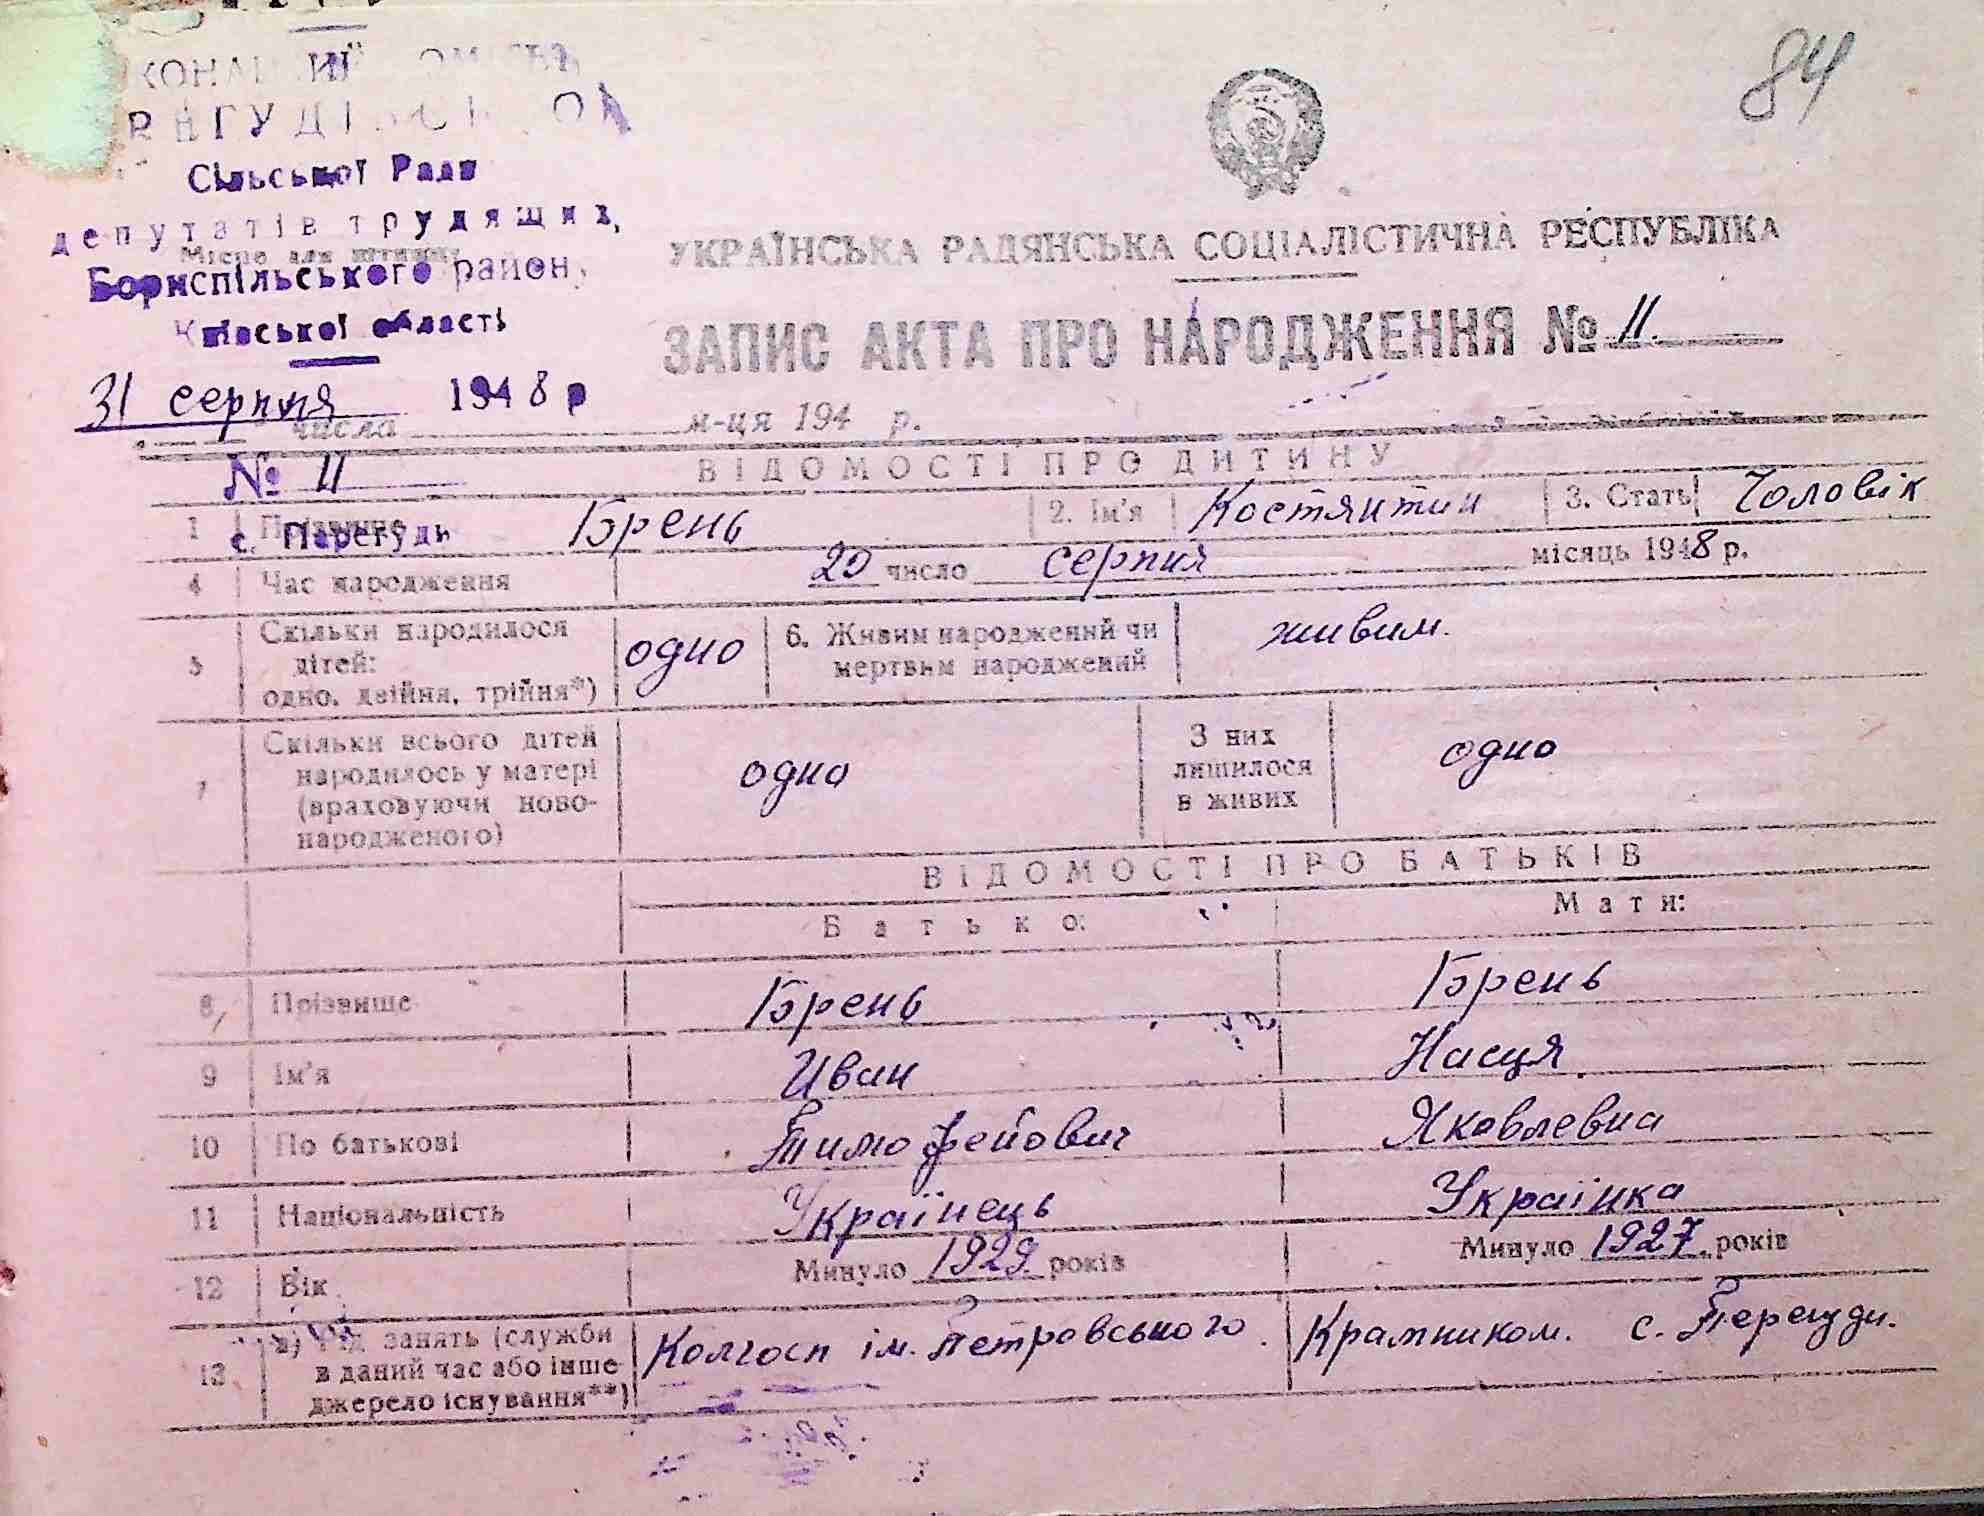 84
Сільської Ради
депутатів трудящих,
Місце для штампу
Бориспільського району
Київської області
31 серпня 1948 р
УКРАЇНСЬКА РАДЯНСЬКА СОЦІАЛІСТИЧНА РЕСПУБЛІКА
ЗАПИС АКТА ПРО НАРОДЖЕННЯ № 11.
числа м-ця 194 р.
№ 11
с. Перегуди
ВІДОМОСТІ ПРО ДИТИНУ
1 Прізвище Брень 2. Ім'я Костянтин 3. Стать Чоловік
4 Час народження 20 число серпня місяць 1948 р.
5 Скільки народилося дітей: одно, двійня, трійня*) одно 6. Живим народжений чи мертвим народжений живим.
7 Скільки всього дітей народилось у матері (враховуючи новонародженого) одно З них лишилося в живих одно
ВІДОМОСТІ ПРО БАТЬКІВ
Батько: Мати:
8 Прізвище Брень Брень
9 Ім'я Иван Насця
10 По батькові Тимофейович Яковлевна
11 Національність Українець Українка
12 Вік Минуло 1929. років Минуло 1927. років
13 а) Рід занять (служби в даний час або інше джерело існування**) Колгосп ім. Петровського. Крамником. с. Перегуди.